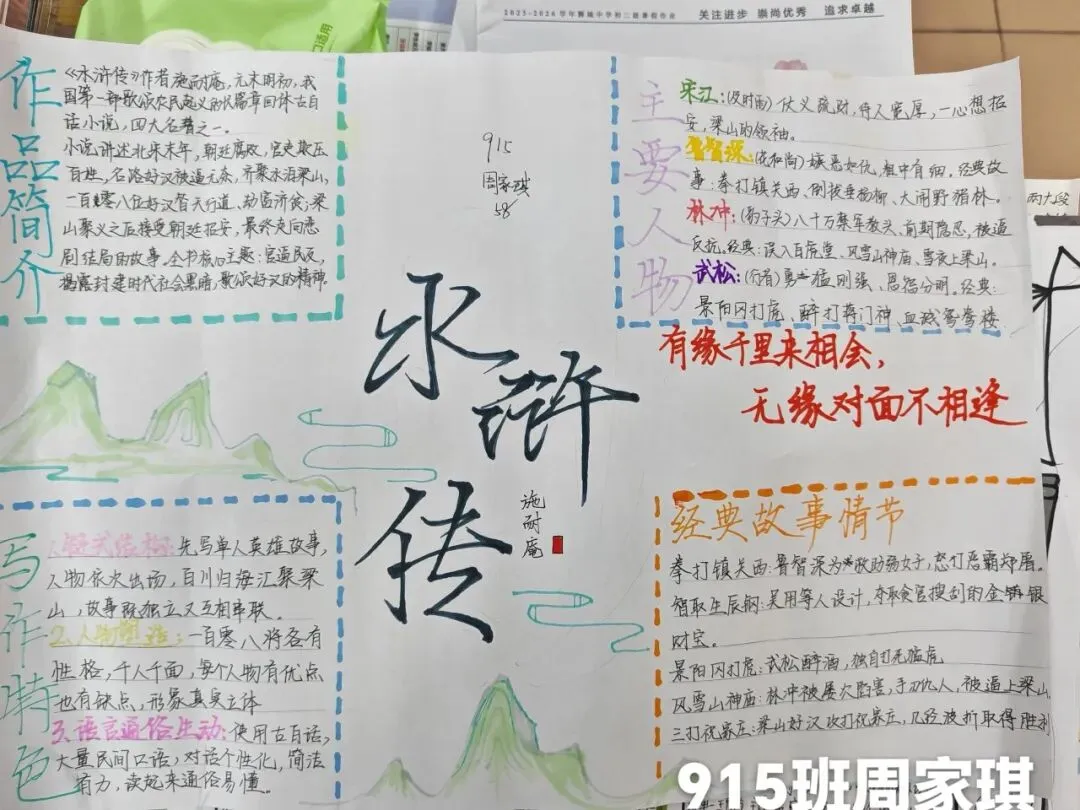 2025-2026学年狮城中学初三级暑假作业
关注进步 崇尚优秀 追求卓越
作品简介
《水浒传》作者施耐庵,元末明初,我
国第一部歌颂农民起义的长篇章回体古白
话小说,四大名著之一。
小说讲述北宋末年,朝廷腐败,官吏欺压
百姓,各路好汉被逼无奈,齐聚水泊梁山,
一百零八位好汉替天行道,劫富济贫;梁
山聚义之后接受朝廷招安,最终走向悲
剧结局的故事。全书核心主题:官逼民反,
揭露封建时代社会黑暗,歌颂好汉的精神。
915
周家琪
58
水浒传
施耐庵
主要人物
宋江:(及时雨)仗义疏财,待人宽厚,一心想招
安,梁山的领袖。
鲁智深:(花和尚)嫉恶如仇,粗中有细。经典故
事:拳打镇关西、倒拔垂杨柳、大闹野猪林。
林冲:(豹子头)八十万禁军教头、前期隐忍,被逼
反抗。经典:误入白虎堂、风雪山神庙、雪夜上梁山。
武松:(行者)勇猛刚强、恩怨分明。经典:
景阳冈打虎、醉打蒋门神、血溅鸳鸯楼
有缘千里来相会,
无缘对面不相逢
写作特色
先写单人英雄故事,
人物依次出场,百川归海汇聚梁
山,故事既独立又互相串联。
2.人物塑造:一百零八将各有
性格,千人千面,每个人物有优点
也有缺点,形象真实立体
3.语言通俗生动:使用古白话,
大量民间口语,对话个性化,简洁
有力,读起来通俗易懂。
经典故事情节
拳打镇关西:鲁智深为救助弱女子,怒打恶霸郑屠。
智取生辰纲:吴用等人设计,夺取贪官搜刮的金银
财宝。
景阳冈打虎:武松醉酒,独自打死猛虎
风雪山神庙:林冲被屡次陷害,手刃仇人,被逼上梁山
三打祝家庄:梁山好汉攻打祝家庄,几经波折取得胜利
915班周家琪